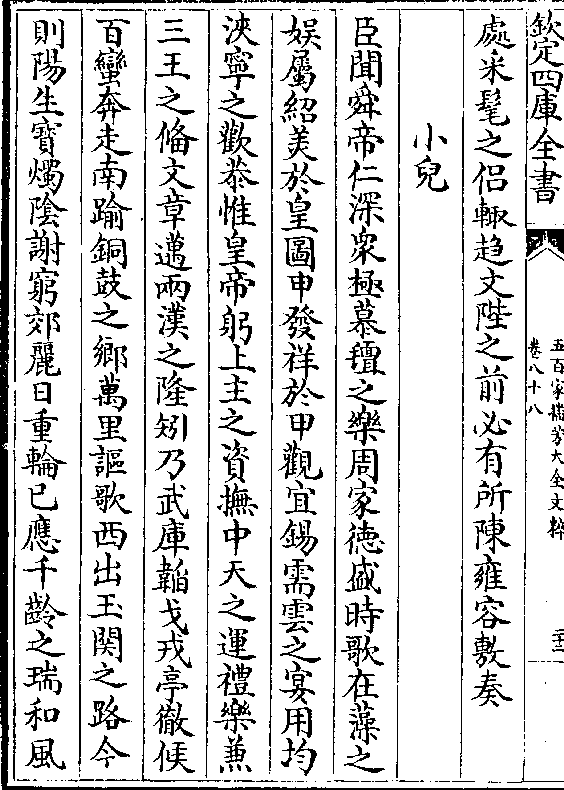 欽定四庫全書
五百家播芳大全文粹
卷八十八
處采髦之侣輙趋文陛之前必有所陳雍容敷奏
小兒
臣聞舜帝仁深衆極慕羶之樂周家徳盛時歌在藻之
娱屬紹美於皇圖申發祥於甲觀宜錫需雲之宴用均
浹寧之歡恭惟皇帝躬上主之資撫中天之運禮樂兼
三王之偹文章邁兩漢之隆矧乃武庫韜戈戎亭徹候
百蠻奔走南踰銅鼓之鄉萬里謳歌西出玉関之路今
則陽生寳燭陰謝窮郊麗日重輪已應千齡之瑞和風